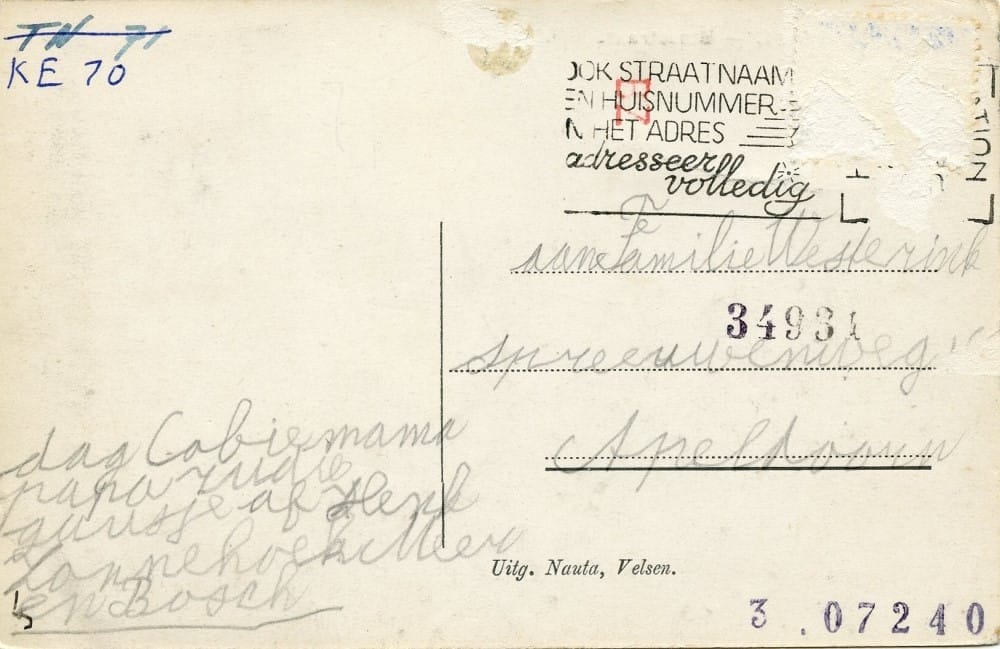 TN 71
KE 70
OOK STRAATNAAM
EN HUISNUMMER
IN HET ADRES
adresseer
volledig
aan Familie Westerink
34934
spreeuwenweg
Apeldoorn
dag Cobie mama
papa rudie
guusje af Henk
Zonnehoek Meer
en Bosch
Uitg. Nauta, Velsen.
3 . 07240